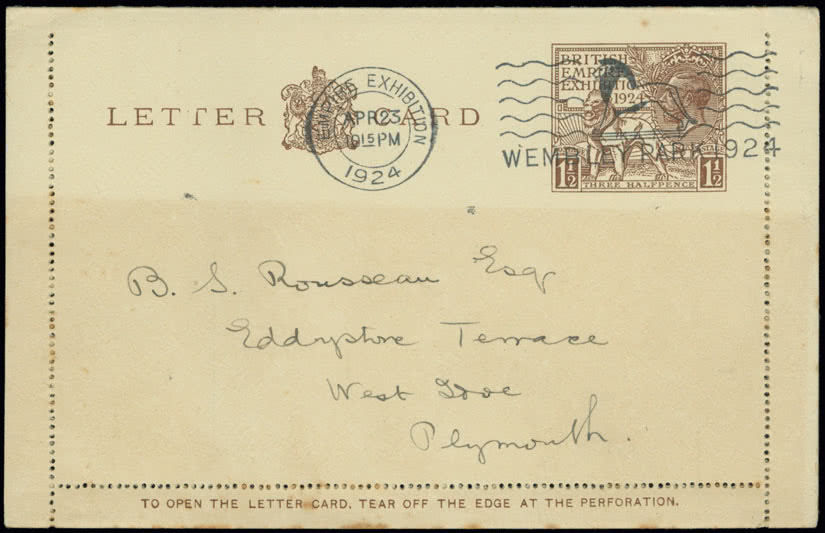 LETTER CARD
EMPIRE EXHIBITION
APR 23
1015PM
1924
BRITISH
EMPIRE
EXHIBITION
1924
WEMBLEY PARK 1924
1½ THREE HALFPENCE 1½
B. S. Rousseau Esq
Eddystone Terrace
West Hoe
Plymouth.
TO OPEN THE LETTER CARD, TEAR OFF THE EDGE AT THE PERFORATION.